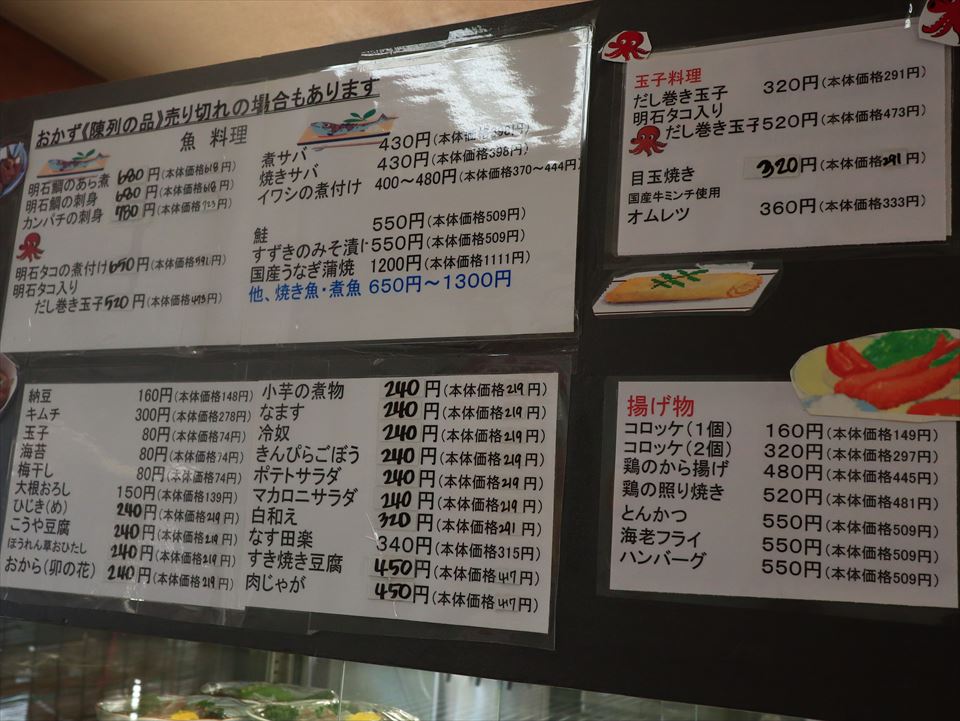 おかず《陳列の品》売り切れの場合もあります
魚 料理
明石鯛のあら煮 680円(本体価格618円)
明石鯛の刺身 680円(本体価格618円)
カンパチの刺身 780円(本体価格723円)
明石タコの煮付け 650円(本体価格591円)
明石タコ入り
だし巻き玉子 520円(本体価格473円)
煮サバ 430円(本体価格398円)
焼きサバ 430円(本体価格398円)
イワシの煮付け 400〜480円(本体価格370〜444円)
鮭 550円(本体価格509円)
すずきのみそ漬け 550円(本体価格509円)
国産うなぎ蒲焼 1200円(本体価格1111円)
他、焼き魚・煮魚 650円〜1300円
玉子料理
だし巻き玉子 320円(本体価格291円)
明石タコ入り
だし巻き玉子 520円(本体価格473円)
目玉焼き 320円(本体価格291円)
国産牛ミンチ使用
オムレツ 360円(本体価格333円)
納豆 160円(本体価格148円)
キムチ 300円(本体価格278円)
玉子 80円(本体価格74円)
海苔 80円(本体価格74円)
梅干し 80円(本体価格74円)
大根おろし 150円(本体価格139円)
ひじき(め) 240円(本体価格219円)
こうや豆腐 240円(本体価格219円)
ほうれん草おひたし 240円(本体価格219円)
おから(卯の花) 240円(本体価格219円)
小芋の煮物 240円(本体価格219円)
なます 240円(本体価格219円)
冷奴 240円(本体価格219円)
きんぴらごぼう 240円(本体価格219円)
ポテトサラダ 240円(本体価格219円)
マカロニサラダ 240円(本体価格219円)
白和え 320円(本体価格291円)
なす田楽 340円(本体価格315円)
すき焼き豆腐 450円(本体価格417円)
肉じゃが 450円(本体価格417円)
揚げ物
コロッケ(1個) 160円(本体価格149円)
コロッケ(2個) 320円(本体価格297円)
鶏のから揚げ 480円(本体価格445円)
鶏の照り焼き 520円(本体価格481円)
とんかつ 550円(本体価格509円)
海老フライ 550円(本体価格509円)
ハンバーグ 550円(本体価格509円)